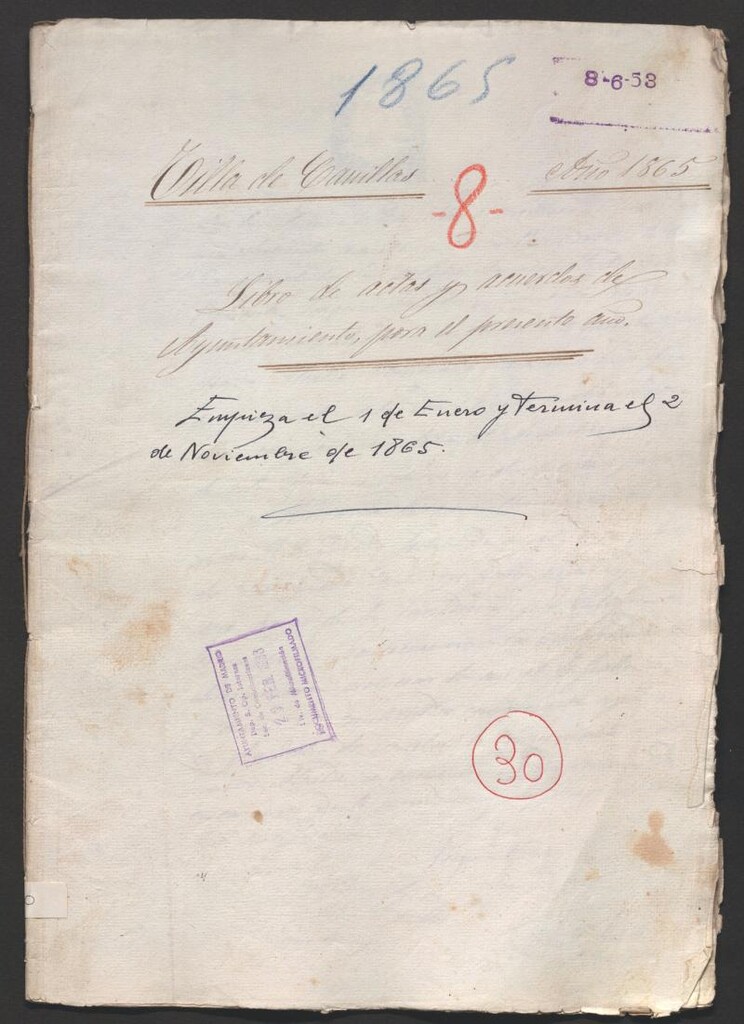 1865
8-6-53
Villa de Canillas
Año 1865
-8-
Libro de actas y acuerdos de
Ayuntamiento, para el presente año.
Empieza el 1 de Enero y Termina el 2
de Noviembre de 1865.
AYUNTAMIENTO DE MADRID
DOCUMENTO MICROFILMADO
30